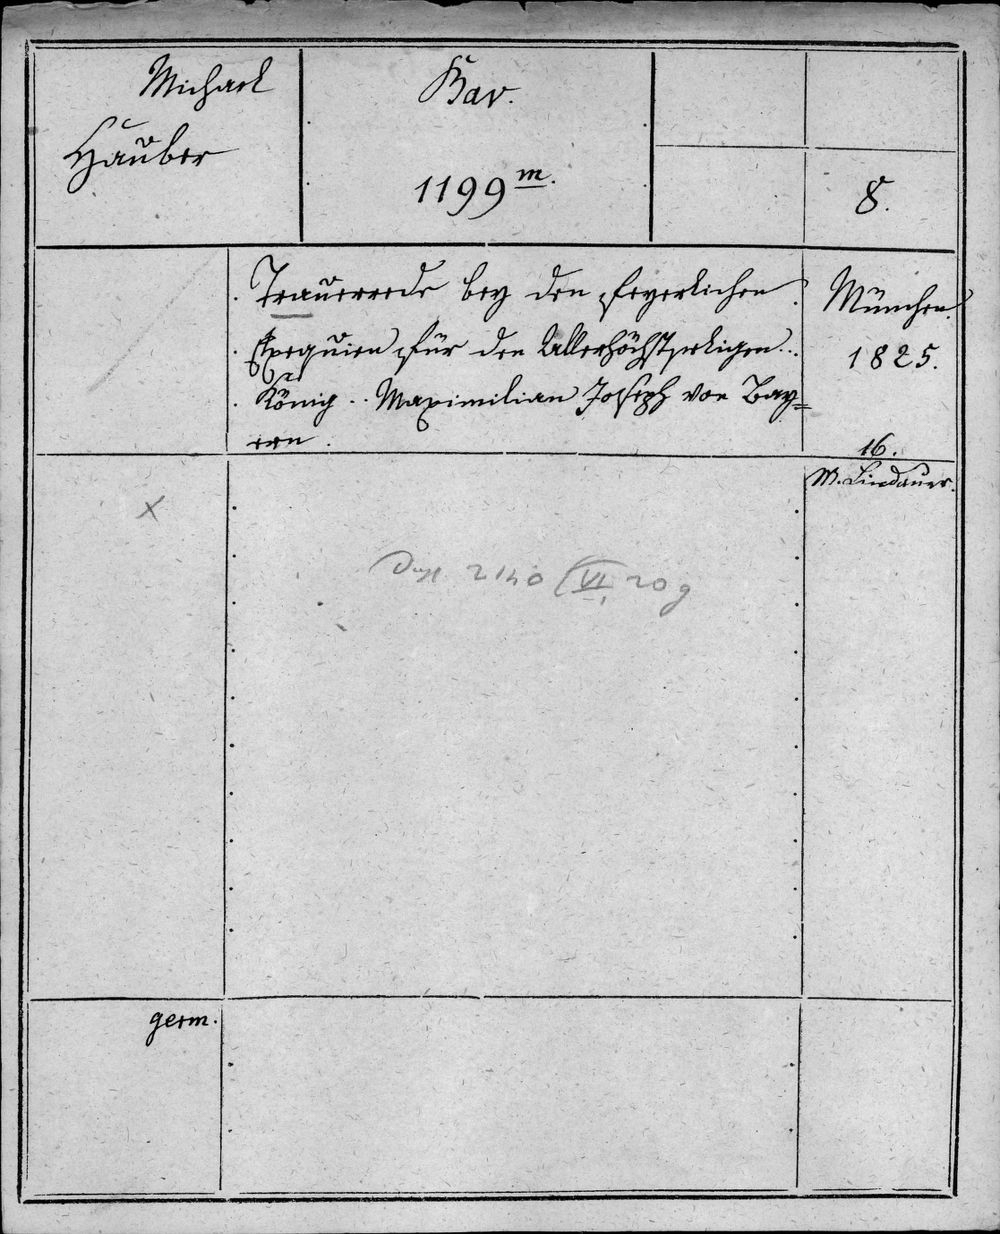 Michael
Hauber
Bav.
1199 m.
8.
Trauerrede bey den feyerlichen
Exequien für den Allerhöchstseeligen..
König .. Maximilian Joseph von Bay=
ern.
München.
1825.
16.
M. Lindauer.
x
2140 VI, 20 g
germ.